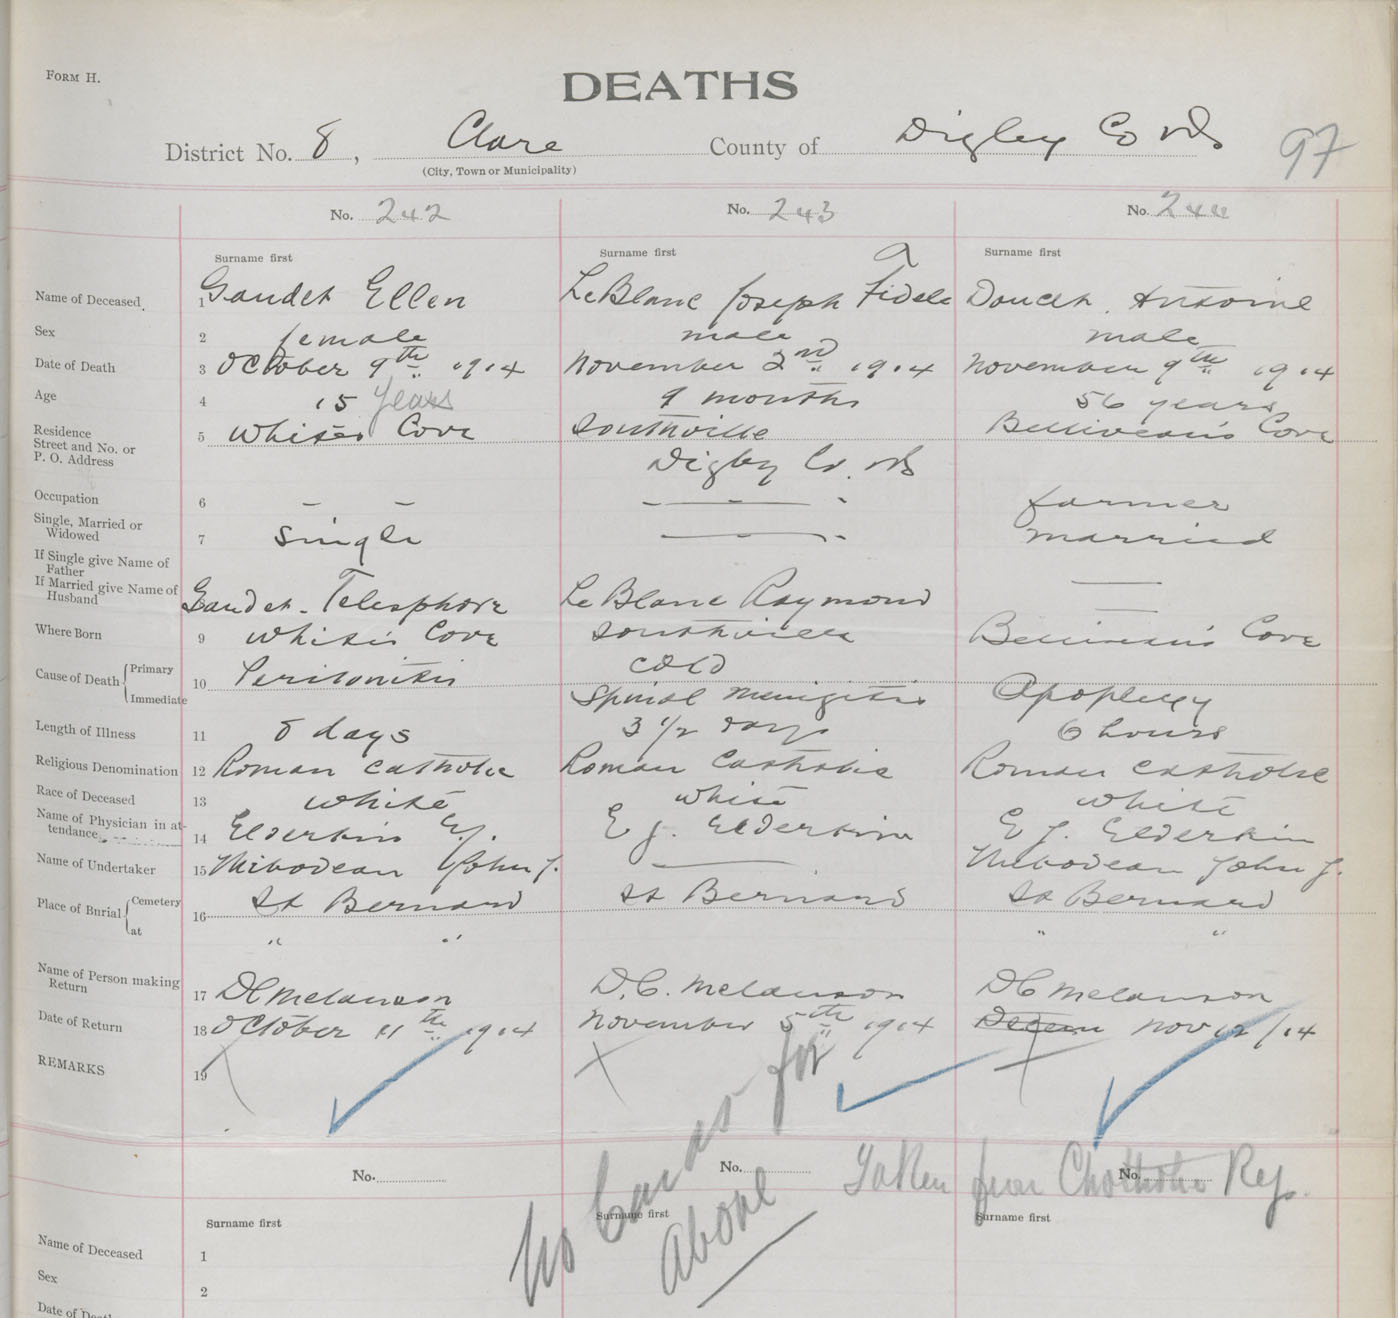 FORM H.
DEATHS
District No. 8, Clare County of Digby Co NS 97
(City, Town or Municipality)
No. 242 No. 243 No. 244
Surname first Surname first Surname first
Name of Deceased 1 Gaudet Ellen LeBlanc Joseph Fidele Doucet Antoine
a
Sex 2 female male male
Date of Death 3 October 9th 1914 November 2nd 1914 November 9th 1914
Age 4 15 Years 9 months 56 years
Residence
Street and No. or
P. O. Address
5 Whites Cove Southville Belliveau's Cove
Digby Co. NS
Occupation 6 – – — farmer
Single, Married or
Widowed
7 Single — married
If Single give Name of
Father
If Married give Name of
Husband
Gaudet. Telesphore LeBlanc Raymond —
Where Born 9 White's Cove Southville Belliveau's Cove
Cause of Death { Primary
Immediate
10 Peritonitis cold
Spinal Menigitis Apoplexy
Length of Illness 11 8 days 3 1/2 days 6 hours
Religious Denomination 12 Roman Catholic Roman Catholic Roman Catholic
Race of Deceased 13 white white white
Name of Physician in at-
tendance
14 Elderkin E.J. E J. Elderkin E J. Elderkin
Name of Undertaker 15 Thibodeau John J. — Thibodeau John J.
Place of Burial { Cemetery
at
16 St Bernard St Bernard St Bernard
" " " "
Name of Person making
Return
17 DC Melanson D.C. Melanson DC Melanson
Date of Return 18 October 11th 1914 November 5th 1914 Decem Nov 12/14
REMARKS 19
No Cards for
above
Taken from Reg.
No. No. No.
Surname first Surname first Surname first
Name of Deceased 1
Sex 2
Date of Death